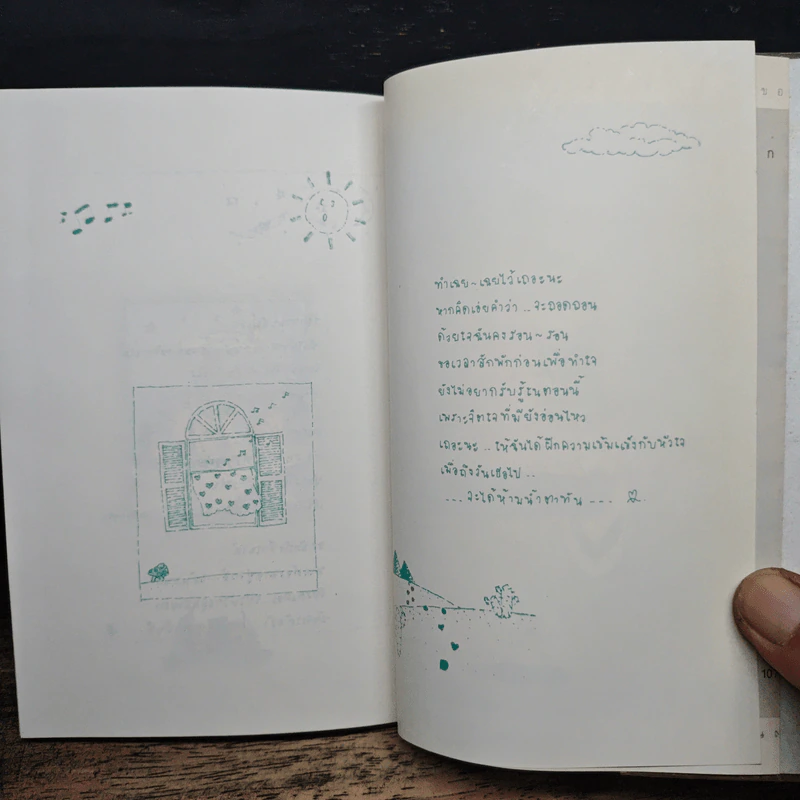 ทำเฉย ~ เฉยไว้เถอะนะ
หากคิดเอ่ยคำว่า .. จะถอดถอน
ด้วยใจฉันคงร้อน ~ รอน
ขอเวลาฮักพักก่อนเพื่อทำใจ
ยังไม่อยากรับรู้ในตอนนี้
เพราะจิตใจที่มียังอ่อนไหว
เถอะนะ .. ให้ฉันได้ฝึกความเข้มแข็งกับหัวใจ
เพื่อถึงวันเธอไป ..
--- จะได้ห้ามน้ำตาทัน ---
ข อ
ก
10